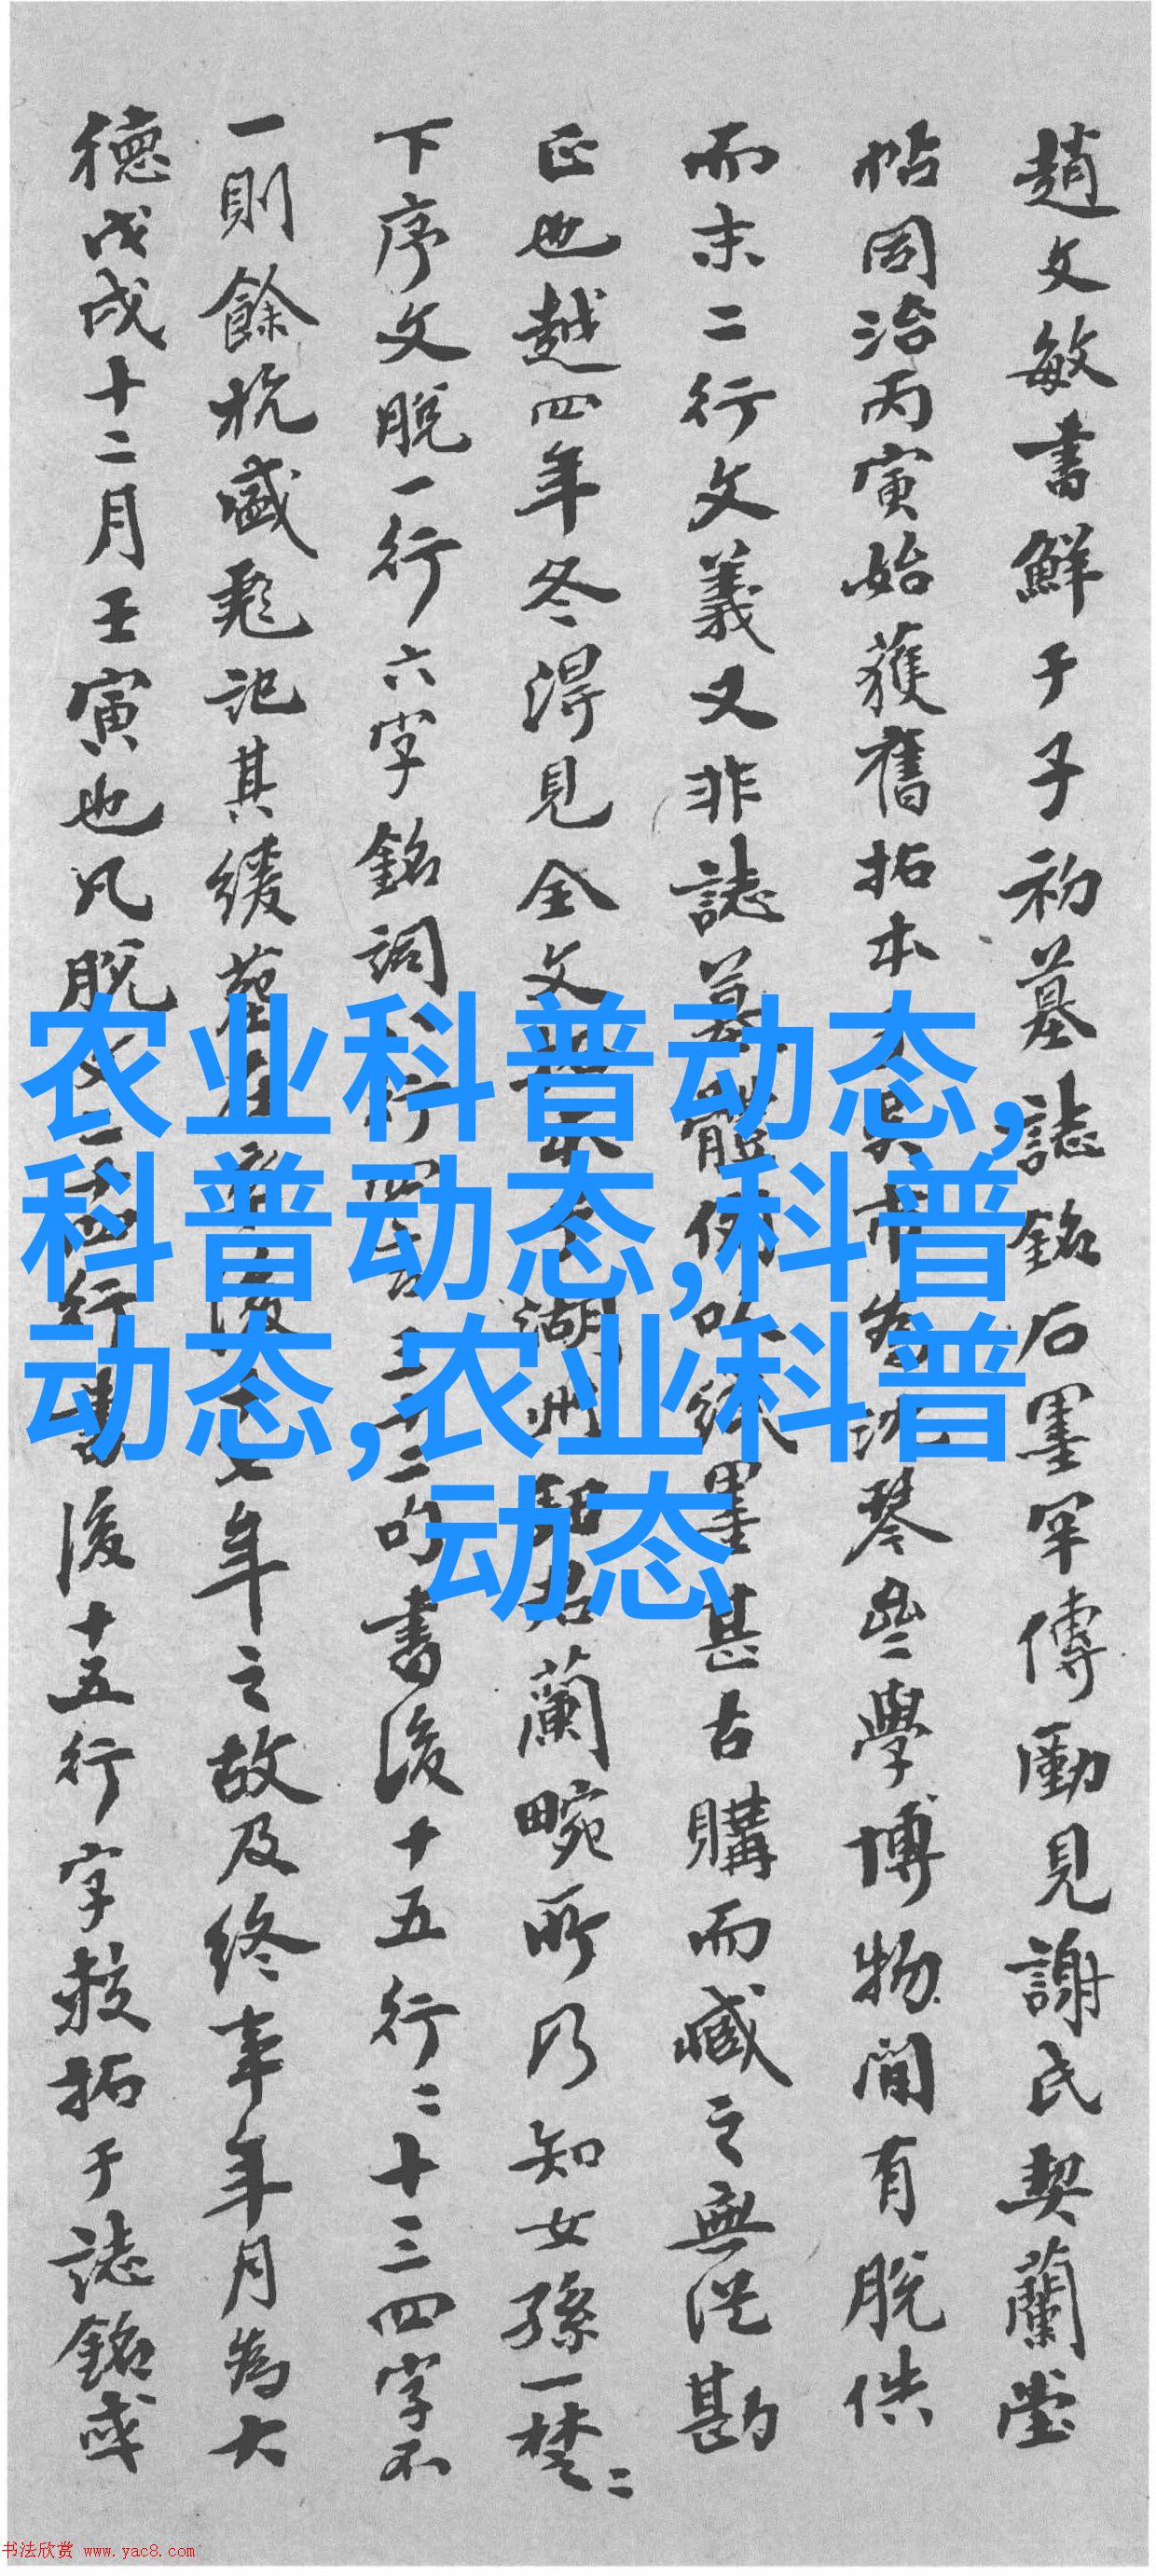 趙文敏書鮮于子初墓誌銘石墨罕傳勵見謝氏契蘭堂
帖同治丙寅始獲舊拓本琴學博物閒有脫佚
而末二行文義又非誌墓體墨甚古購而臧之無從勘
正也越四年冬得見全文湖州蘭畹所乃知女孫一楚二
下序文脫一行六字銘詞行四言三十二句書後十五行二十三四字不
一則餘杭盛彪記其緩葬年之故及終事年月為大
德戊戌十二月壬寅也凡脫行書後十五行字教拓于誌銘或
农业科普动态,
科普动态,科普
动态,农业科普
动态
书法欣赏 www.yac8.com